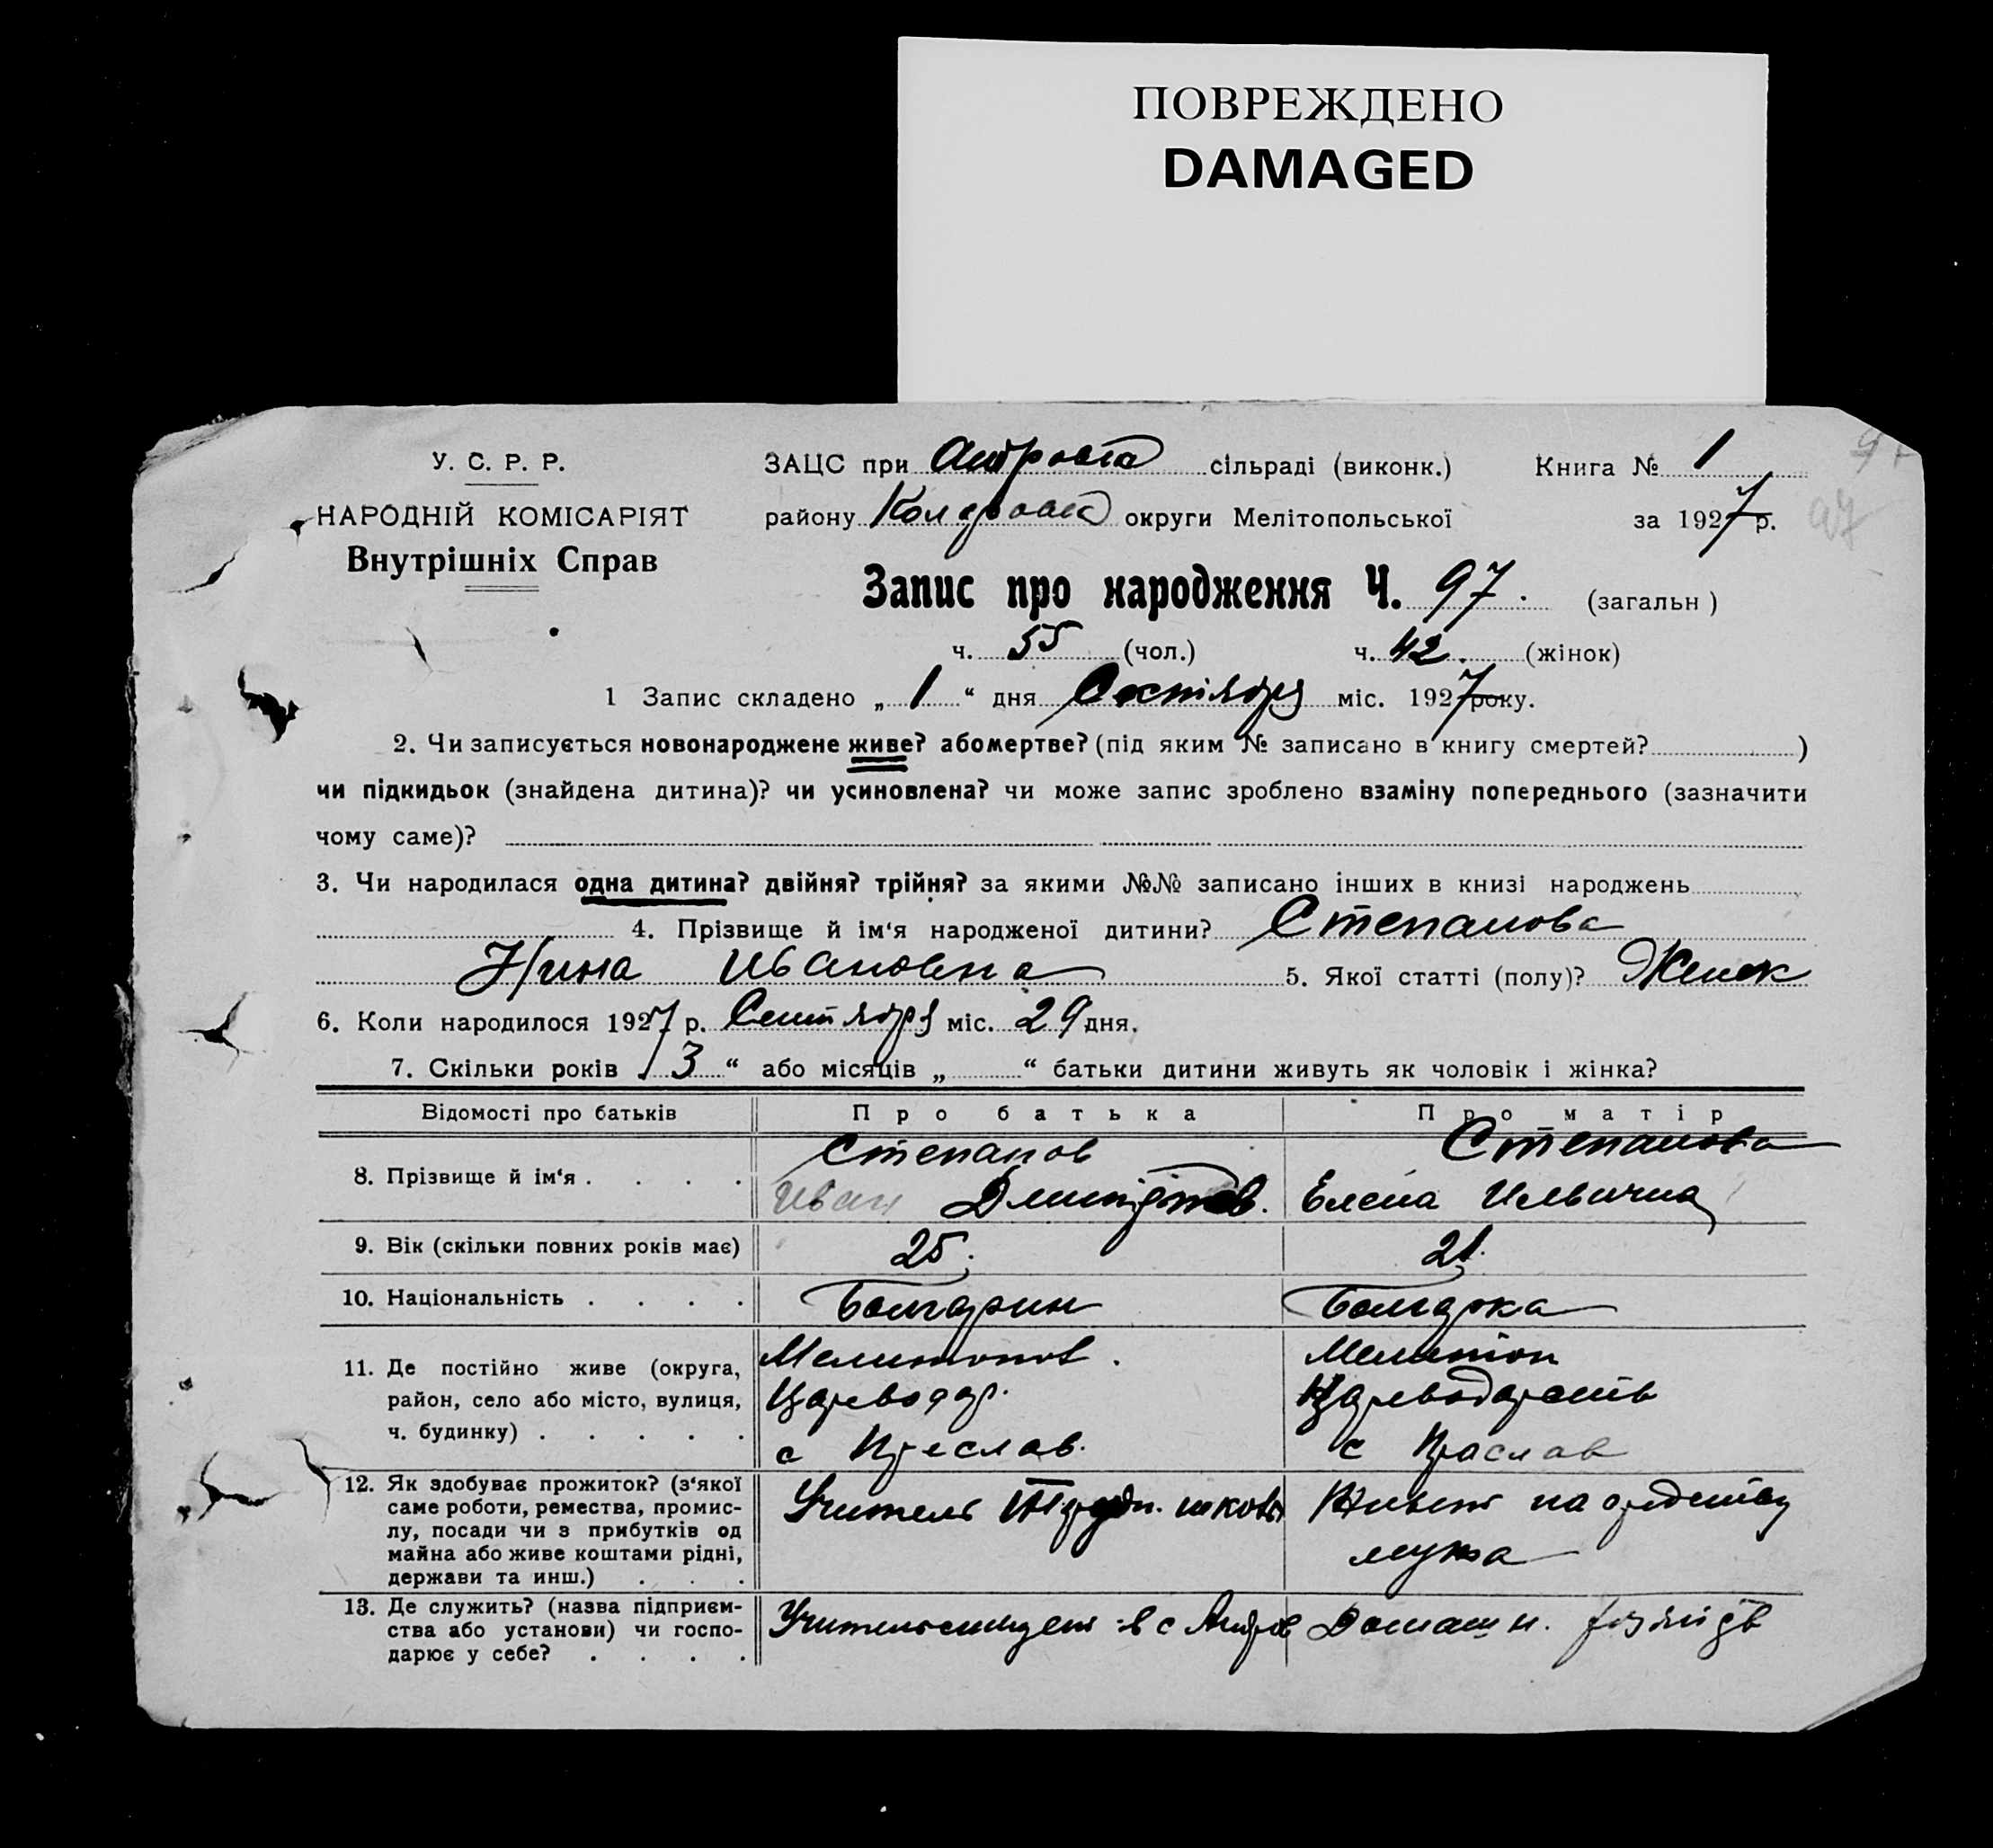 ПОВРЕЖДЕНО
DAMAGED
У. С. Р. Р.
НАРОДНІЙ КОМІСАРІЯТ
Внутрішніх Справ
ЗАЦС при сільраді (виконк.) Книга № 1
району округи Мелітопольської за 1927 р.
97
Запис про народження Ч. 97. (загальн)
ч. 55 (чол.) ч. 42. (жінок)
1 Запис складено „ 1 “ дня міс. 1927 року.
2. Чи записується новонароджене живе? або мертве? (під яким № записано в книгу смертей? )
чи підкидьок (знайдена дитина)? чи усиновлена? чи може запис зроблено взаміну попереднього (зазначити
чому саме)?
3. Чи народилася одна дитина? двійня? трійня? за якими №№ записано інших в книзі народжень
4. Прізвище й ім‘я народженої дитини? Степанова
Нина Ивановна 5. Якої статті (полу)? Женск
6. Коли народилося 1927 р. Сентября міс. 29 дня.
7. Скільки років „ 3 “ або місяців „ “ батьки дитини живуть як чоловік і жінка?
Відомості про батьків Про батька Про матір
8. Прізвище й ім‘я . . . . Степанов Иван Степанова Елена Ильична
9. Вік (скільки повних років має) 25. 21.
10. Національність . . . . Болгарин Болгарка
11. Де постійно живе (округа,
район, село або місто, вулиця,
ч. будинку) . . . . .
Мелитопол.
Цареводар.
с Преслав.
Мелитоп
Цареводарств
с Праслав
12. Як здобуває прожиток? (з‘якої
саме роботи, ремества, промис-
лу, посади чи з прибутків од
майна або живе коштами рідні,
держави та инш.) . . .
Учитель школы
Живет на средства
мужа
13. Де служить? (назва підприєм-
ства або установи) чи госпо-
дарює у себе? . . . .
Учительствует в с Андров
Домашн.